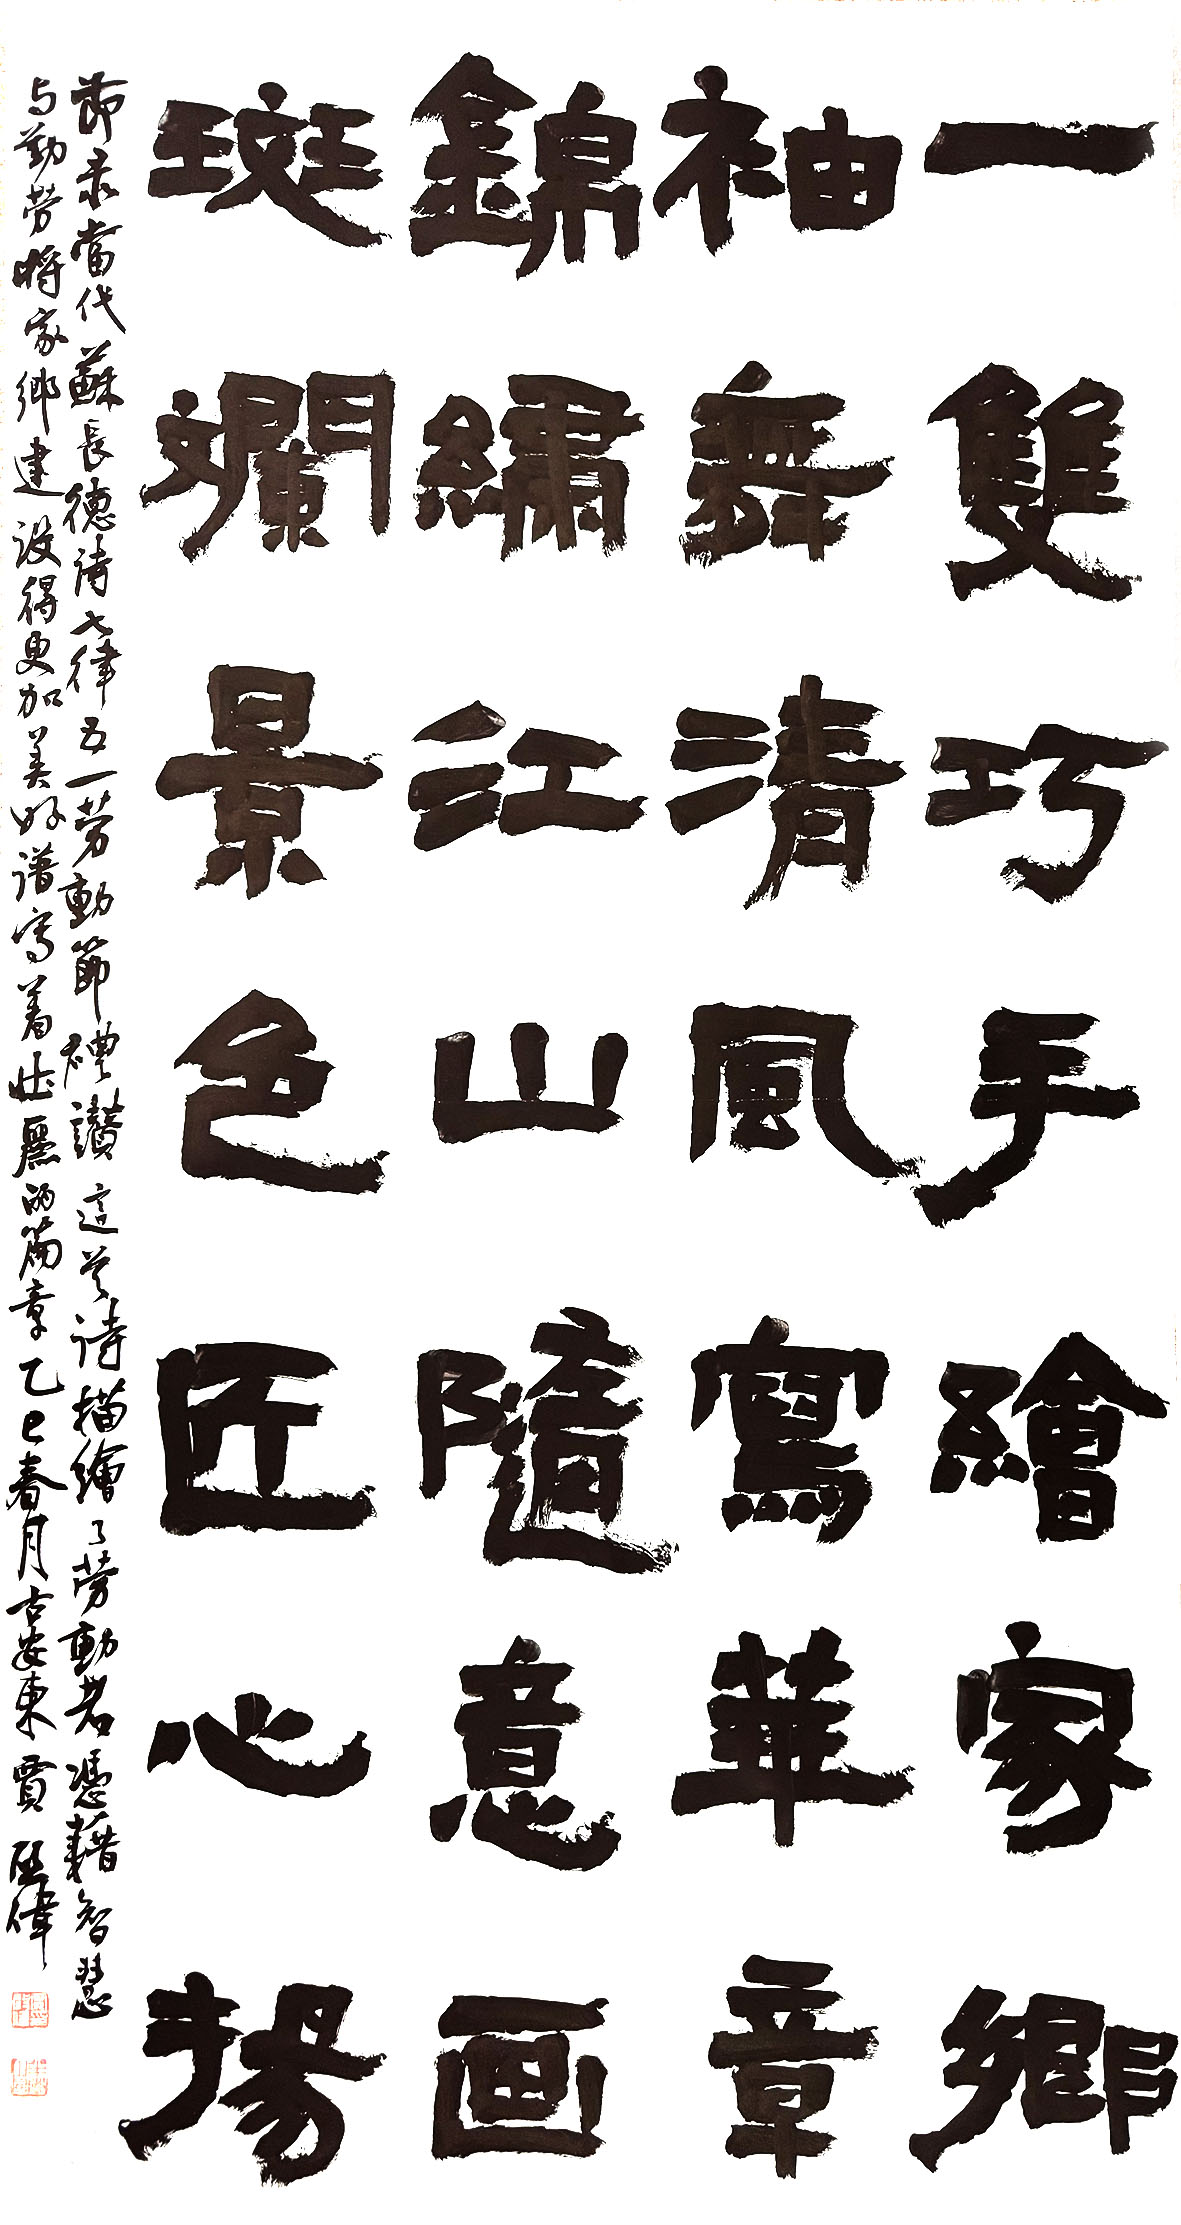 一雙巧手繪家鄉
袖舞清風寫華章
錦繡江山隨意画
斑斕景色匠心揚
節录當代蘇長德詩七律五一劳動節禮讚這首詩描繪了劳動者憑藉智慧
与勤劳将家鄉建设得更加美好谱寫着壮麗的篇章乙巳春月古安東賈延偉